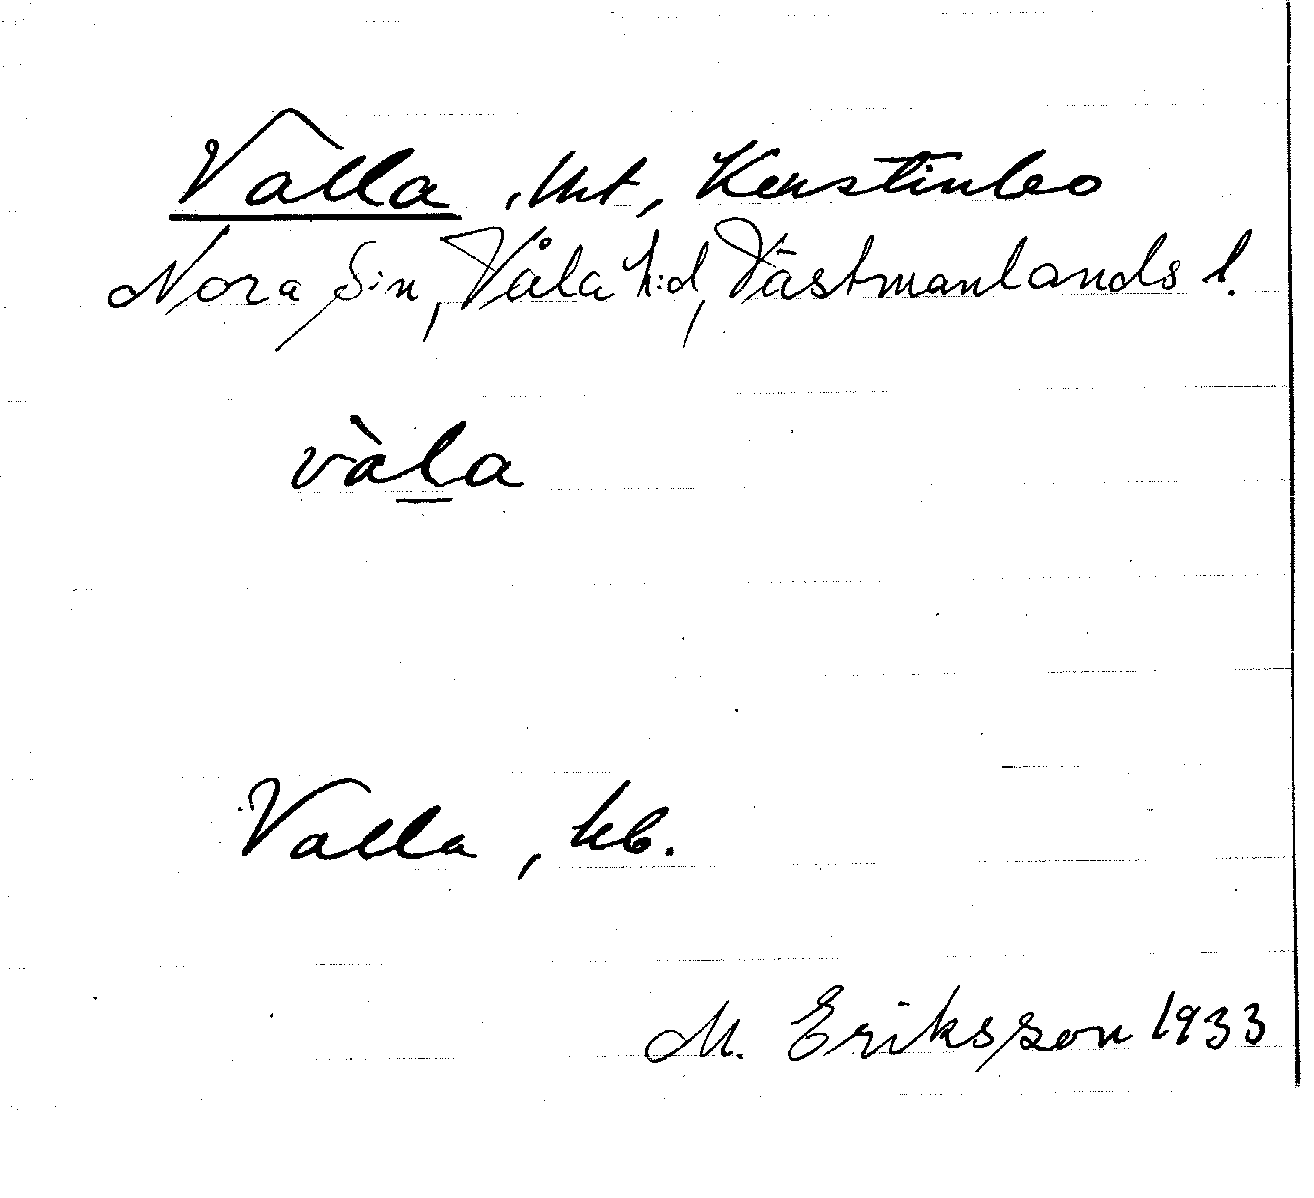 Valla, Unt, Kerstinbo
Nora S:n, Våla h:d, Västmanlands l.
vàla
Valla, kb.
M. Eriksson 1933